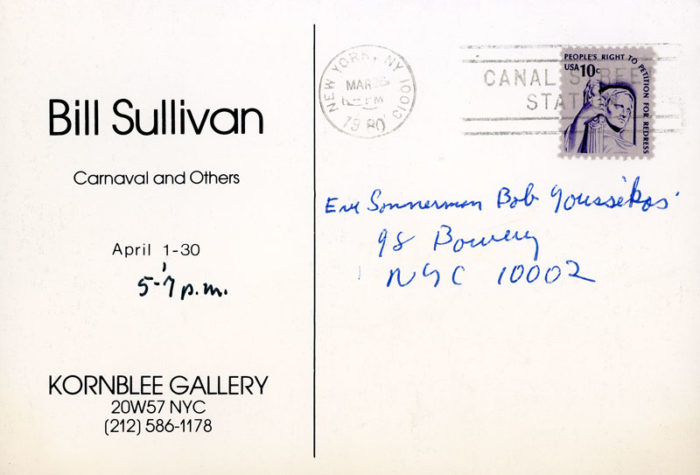 Bill Sullivan
Carnaval and Others
April 1-30
5-7 p.m.
KORNBLEE GALLERY
20W57 NYC
(212) 586-1178
NEW YORK, NY 10013
MAR
PM
1980
CANAL STREET
STAT
PEOPLE'S RIGHT TO PETITION FOR REDRESS
USA 10c
Eve Sonnerman Bob
98 Bowery
NYC 10002